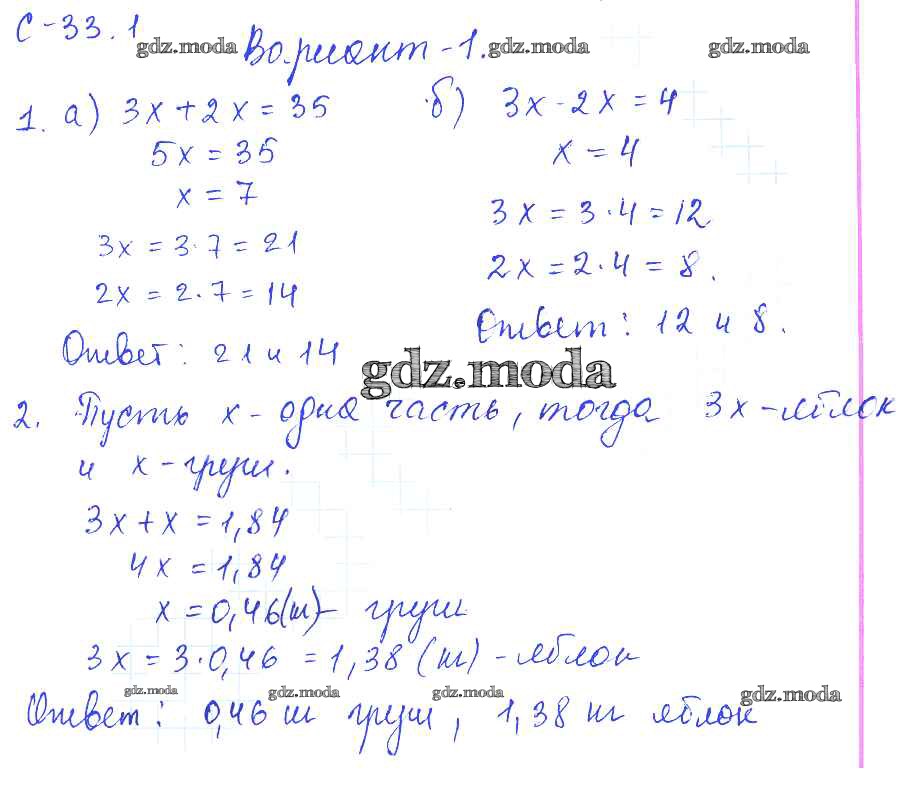 С-33.1
gdz.moda Вариант-1. gdz.moda gdz.moda
1. а) 3x+2x=35
5x=35
x=7
3x=3·7=21
2x=2·7=14
Ответ: 21 и 14
б) 3x-2x=4
x=4
3x=3·4=12
2x=2·4=8.
Ответ: 12 и 8.
gdz.moda
2. Пусть x-одна часть, тогда 3x-яблок
и x-груши.
3x+x=1,84
4x=1,84
x=0,46(т)- груши
3x=3·0,46=1,38(т)-яблок
gdz.moda gdz.moda gdz.moda gdz.moda
Ответ: 0,46 т груш, 1,38 т яблок